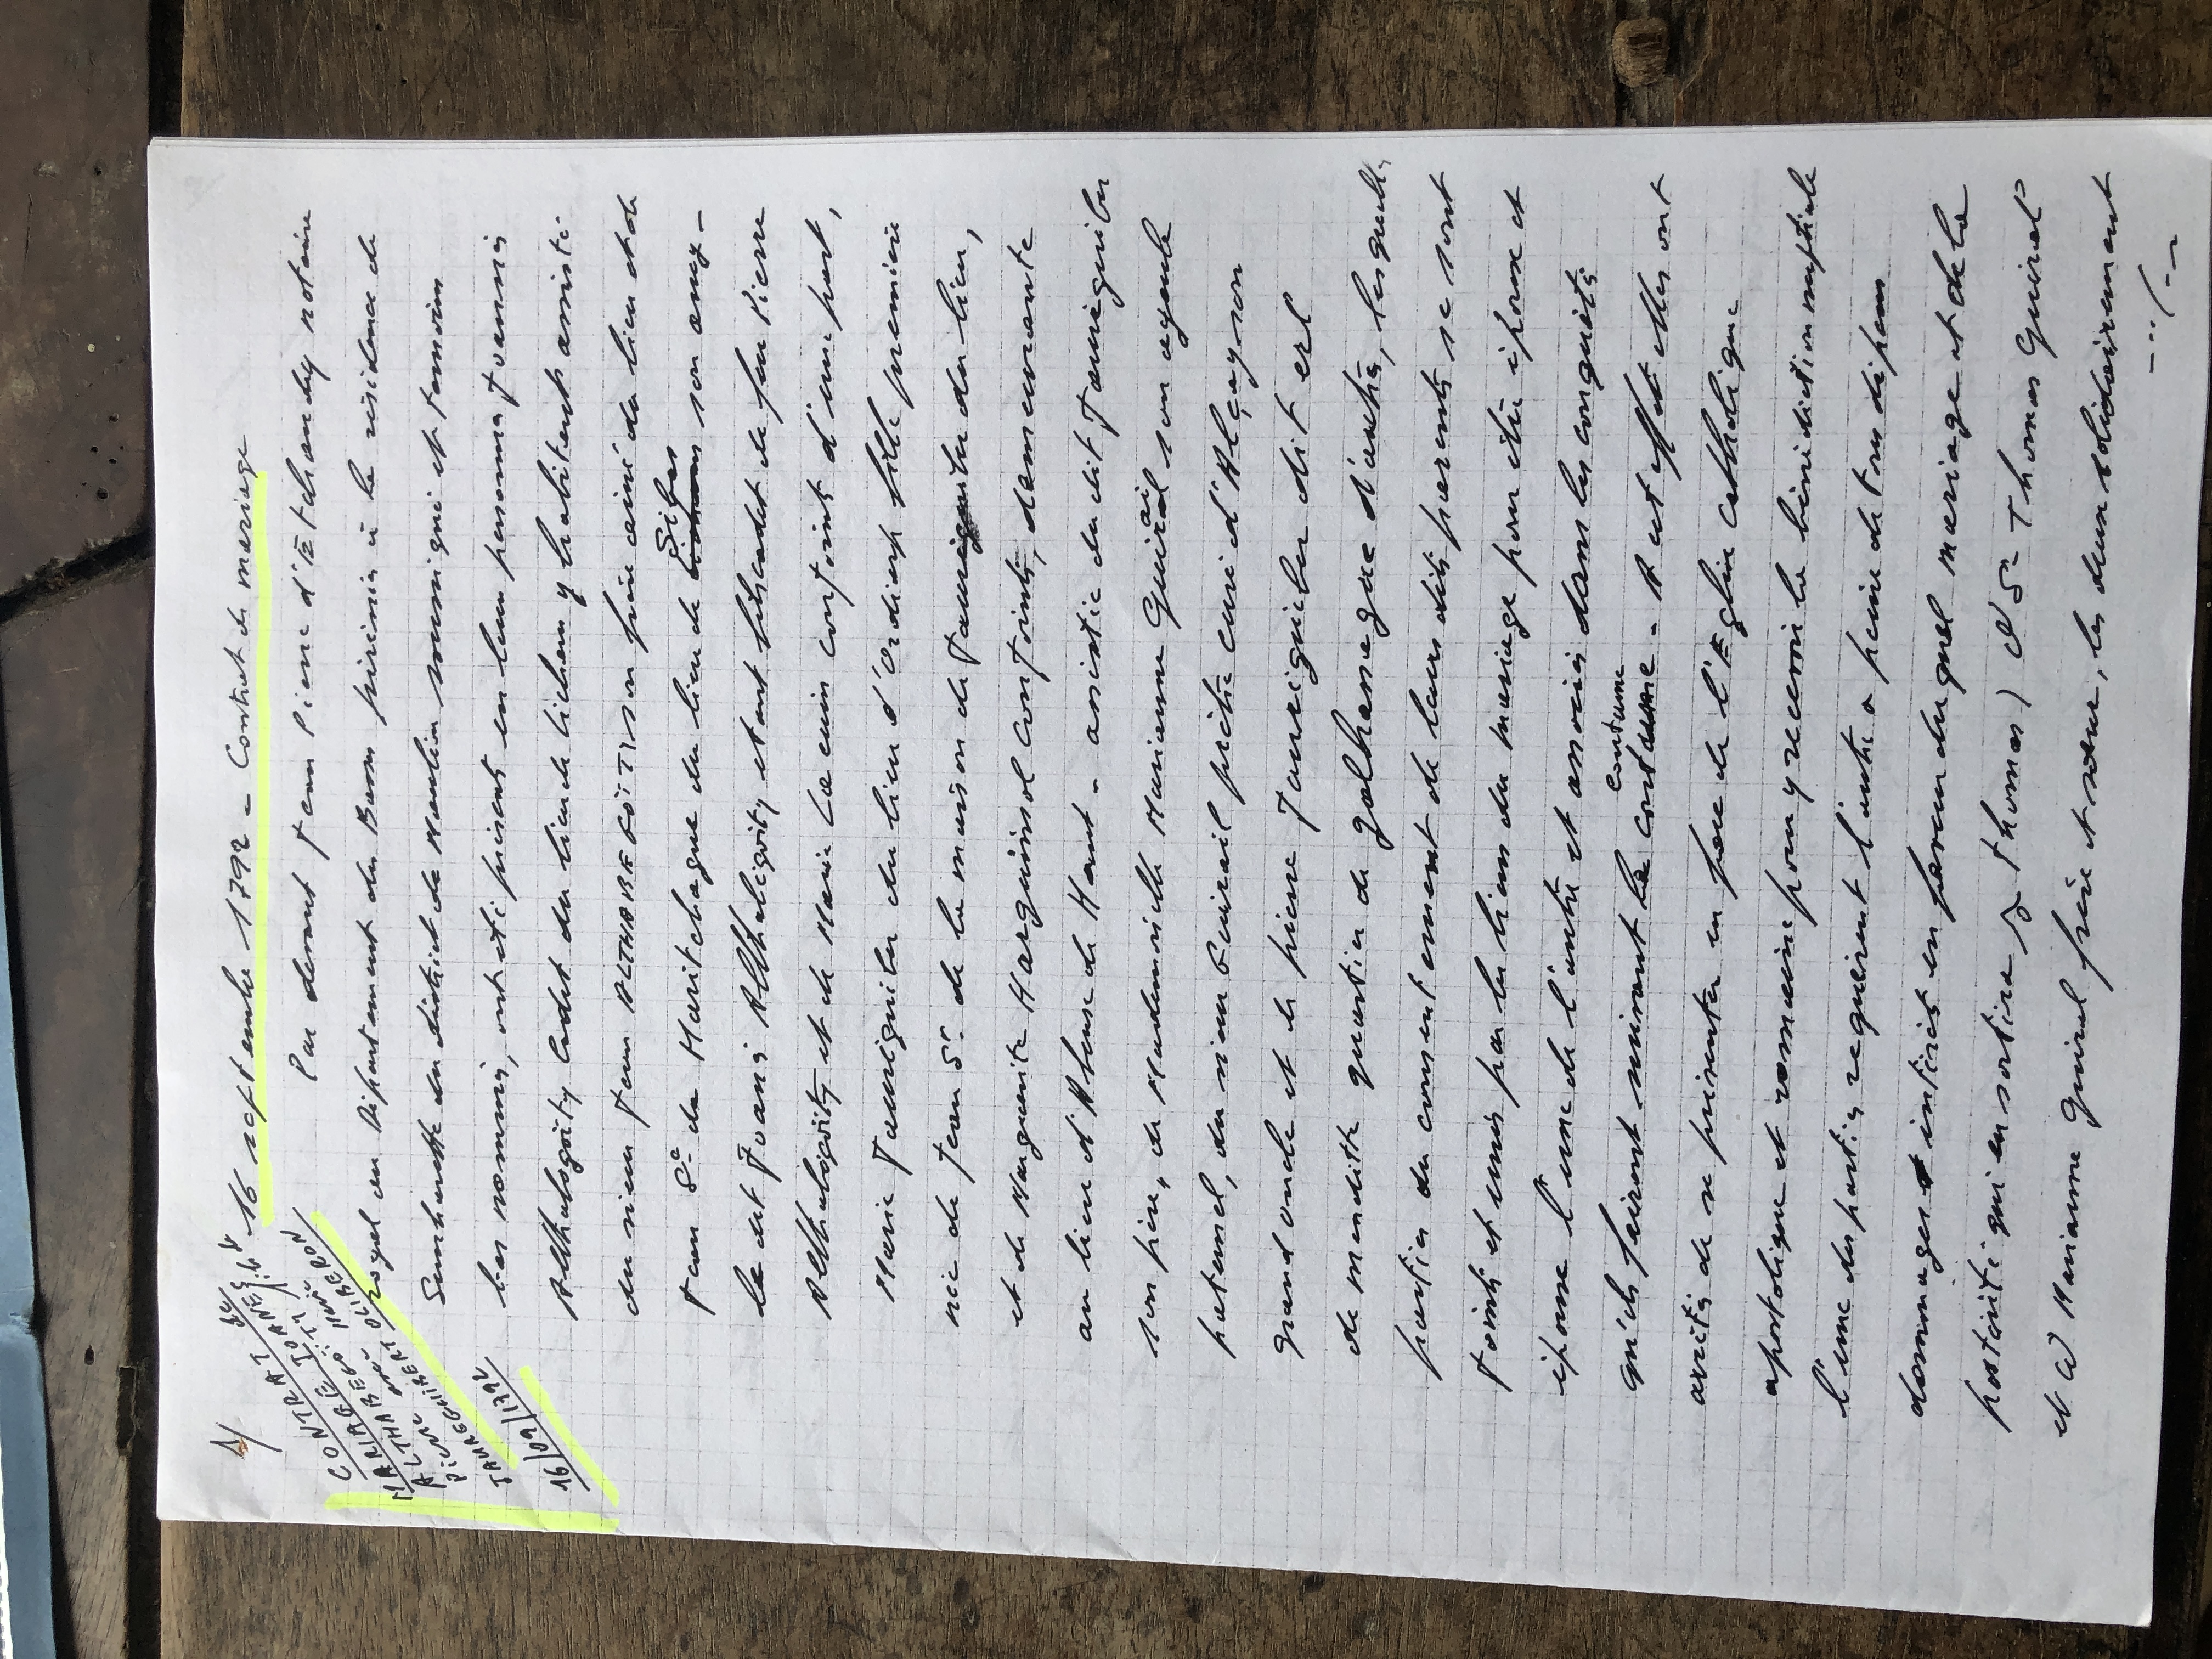 1/
CONTRAT DE
MARIAGE JOANE
16 septembre 1792 - Contrat de mariage
Par devant Jean Pierre d'Etchandy notaire
royal au Département du Basses pirinies à la résidence de
du district de Mauléon soussigné et temoins
bas nommés, ont été présents en leurs personnes Joannis
Althaligoïty Cadet du lieu de Lichans y habitant assisté
du sieur Jean ALTHABEGOÏTY son frère ainé du lieu et de
Jean Sr de Haritchague du lieu de Sibas son
le dit Joanis Althaligoïty étant fils cadet de feu Pierre
Althaligoïty et de Marie Lacuin conjoints d'une part,
Marie Jaureguiber du lieu d'Ordiarp fille première
née de Jean Sr de la maison de Jaureguiber du lieu,
et de Marguerite Harguinsol conjoints, demeurante
au lieu d'Alos de Haut - assistée du dit Jaureguiber
son père, de Mademoiselle Marianne Guiral son ayeule
paternel, du sieur Guirail prêtre curé d'Alçay son
grand oncle et de pierre Jaureguiber dit erl
de mendite quartier de d'autre, lesquelles
parties du consentement de leurs dits parents se sont
joints et unis par les liens du mariage pour être époux et
épouse l'une de l'autre et associés dans les conquêts
qu'ils fairont suivant la coutume - A cet effet elles ont
arrêté de se présenter en face de l'Eglise catholique
apostolique et romaine pour y recevoir la bénédiction nuptiale
l'une des parties requérant l'autre à peine de tous dépens
dommages intérêts en faveur duquel mariage et de la
postérité qui en sortira Thomas) Sr Thomas Guiral
et Marianne Guiral frère et sœur, les deux solidairement
---/--
PIERRE
JAUREGUIBER
16/09/1792